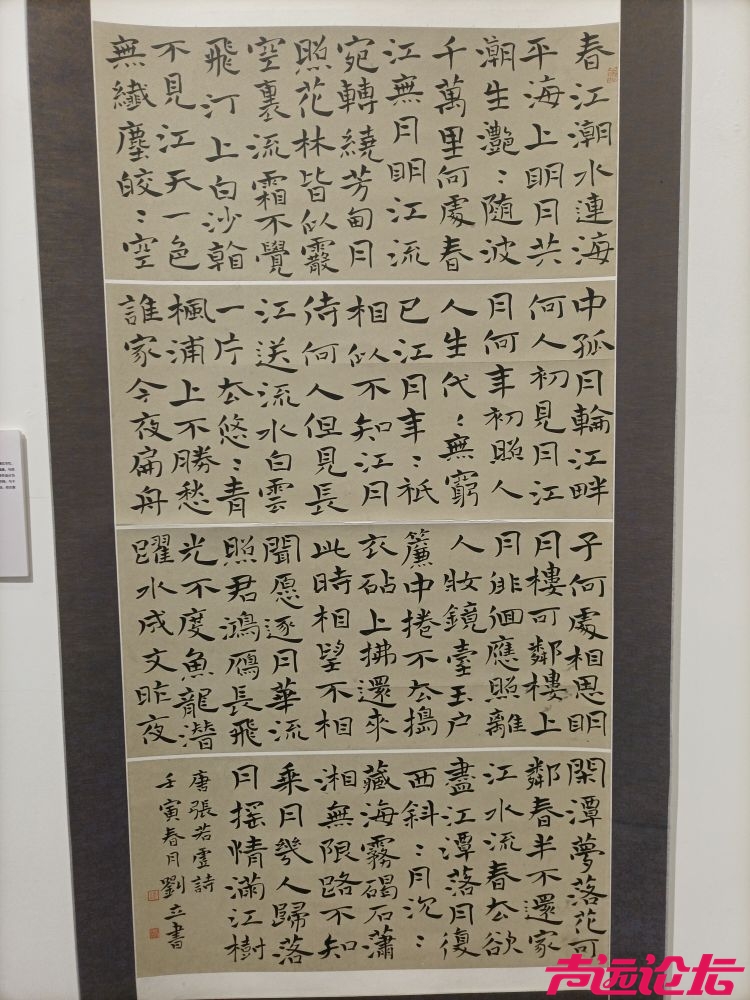 春江潮水連海
平海上明月共
潮生灔〻隨波
千萬里何處春
江無月明江流
宛轉繞芳甸月
照花林皆似霰
空裏流霜不覺
飛汀上白沙看
不見江天一色
無纖塵皎〻空
中孤月輪江畔
何人初見月江
月何年初照人
人生代〻無窮
已江月年〻祇
相似不知江月
待何人但見長
江送流水白雲
一片去悠〻青
楓浦上不勝愁
誰家今夜扁舟
子何處相思明
月樓可鄰樓上
月徘徊應照離
人妝鏡臺玉户
簾中捲不去搗
衣砧上拂還來
此時相望不相
聞愿逐月華流
照君鴻雁長飛
光不度魚龍潛
躍水成文昨夜
閑潭夢落花可
鄰春半不還家
江水流春去欲
盡江潭落月復
西斜〻月沉〻
藏海霧碣石瀟
湘無限路不知
乘月幾人歸落
月摇情滿江樹
唐張若虛詩
壬寅春月劉立書
声远论坛